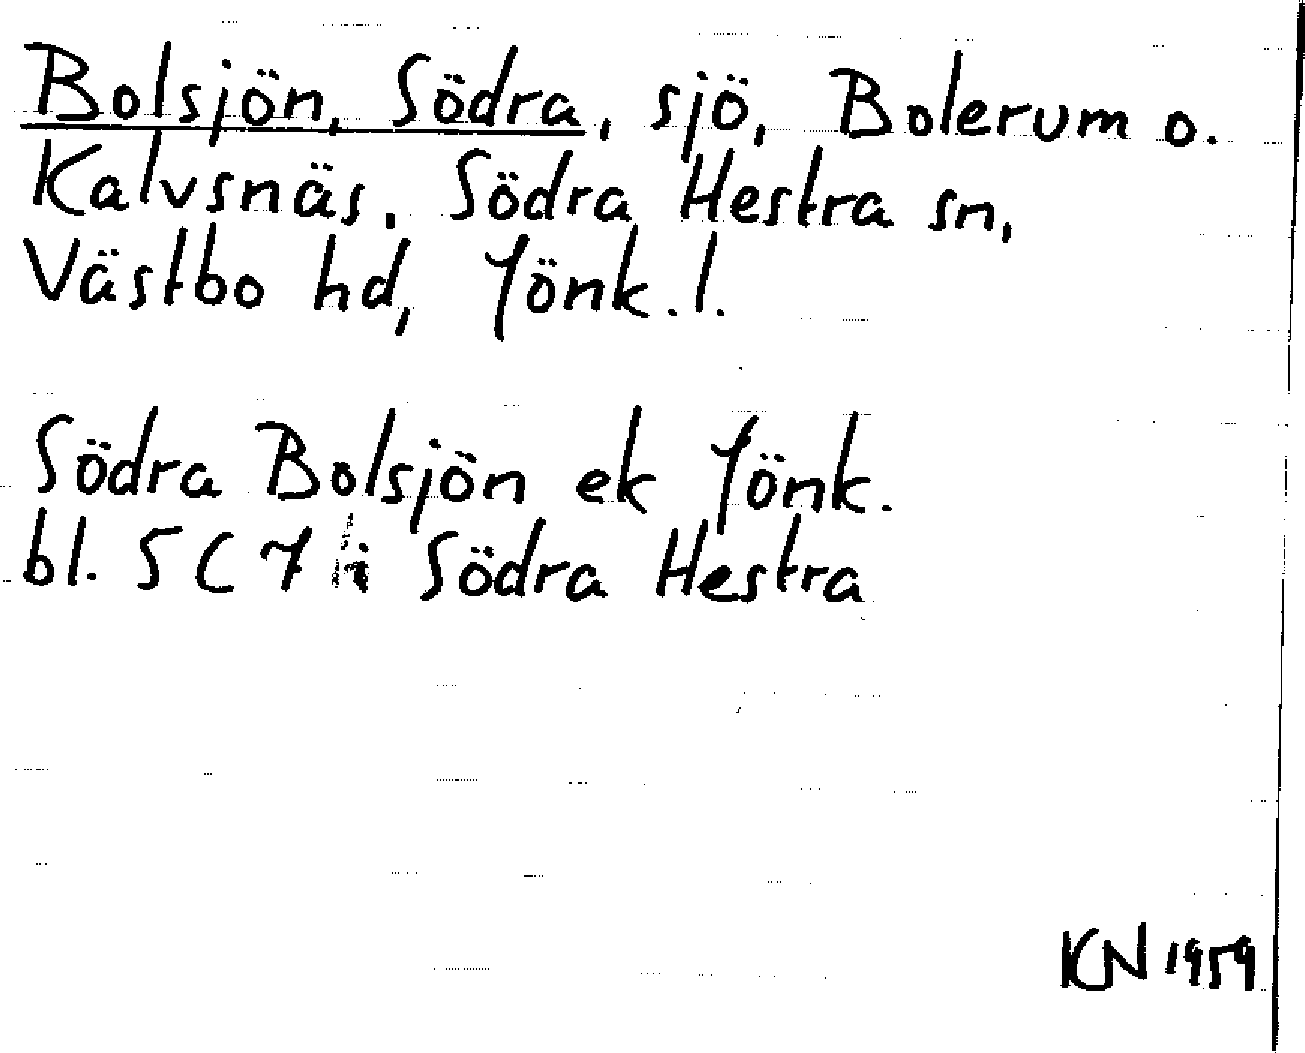 Bolsjön, Södra, sjö, Bolerum o.
Kalvsnäs, Södra Hestra sn,
Västbo hd, Jönk.l.
Södra Bolsjön ek Jönk.
bl. 5 C 7 i Södra Hestra
KN 1959